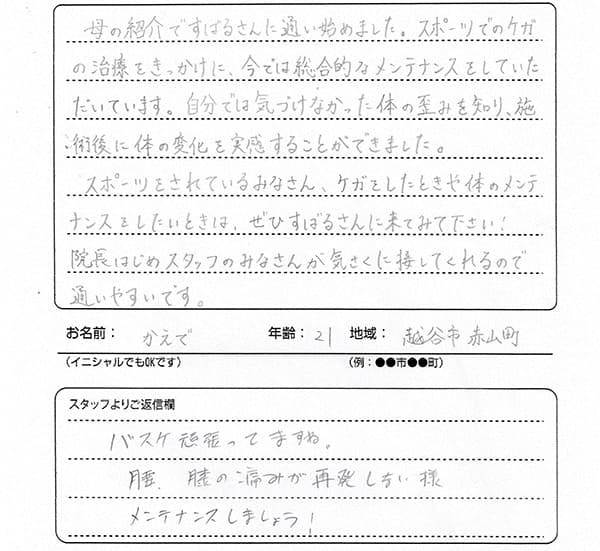 母の紹介ですばるさんに通い始めました。スポーツでのケガ
の治療をきっかけに、今では総合的なメンテナンスをしていた
だいています。自分では気づけなかった体の歪みを知り、施
術後に体の変化を実感することができました。
スポーツをされているみなさん、ケガをしたときや体のメンテ
ナンスをしたいときは、ぜひすばるさんに来てみて下さい!
院長はじめスタッフのみなさんが気さくに接してくれるので
通いやすいです。
お名前: かえで 年齢: 21 地域: 越谷市 赤山町
(イニシャルでもOKです) (例:●●市●●町)
スタッフよりご返信欄
バスケ頑張ってますね。
腰、膝の痛みが再発しない様
メンテナンスしましょう!